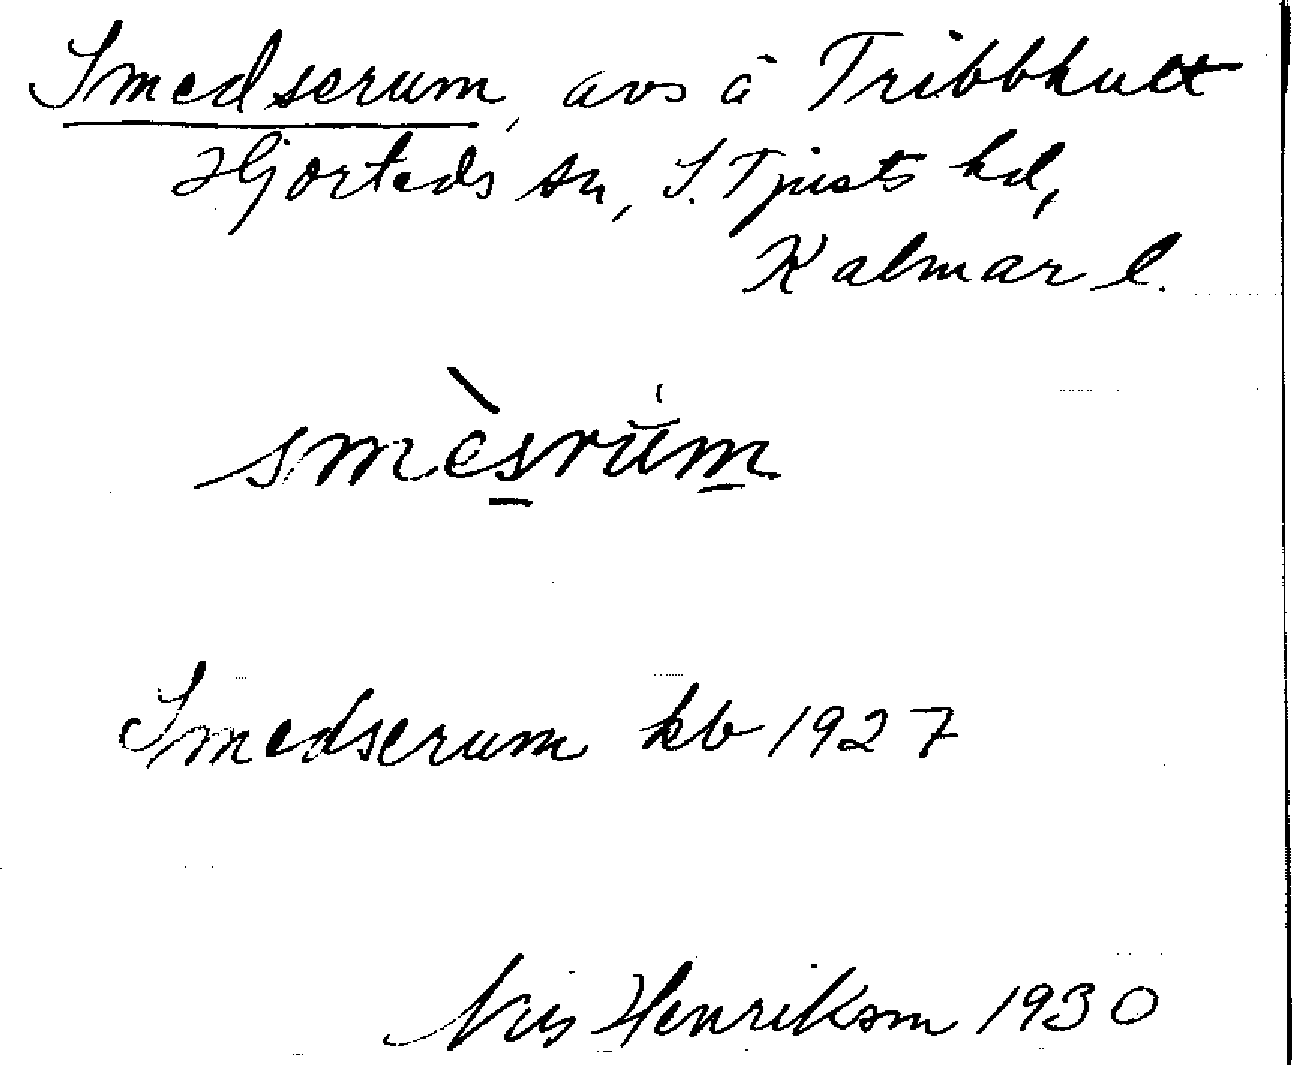 Smedserum, avs å Tribbhult
Hjorteds sn, S. Tjusts hd,
Kalmar l.
smèsrùm
Smedserum kb 1927
Nils Henrikson 1930